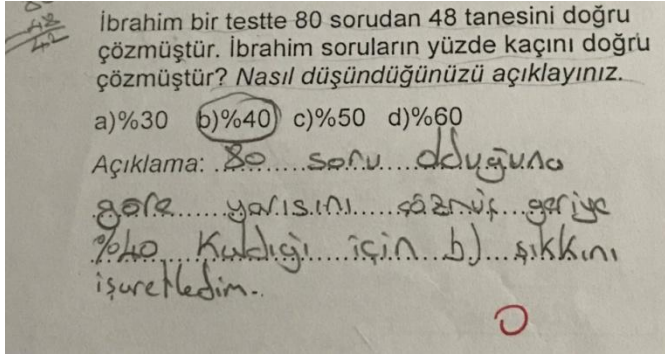 İbrahim bir testte 80 sorudan 48 tanesini doğru
çözmüştür. İbrahim soruların yüzde kaçını doğru
çözmüştür? Nasıl düşündüğünüzü açıklayınız.
a)%30 b)%40 c)%50 d)%60
Açıklama: .80.....soru.....olduğuna
göre......yarısını.....çözmüş...geriye
%40....Kaldığı....için...b)...şıkkını
işaretledim..